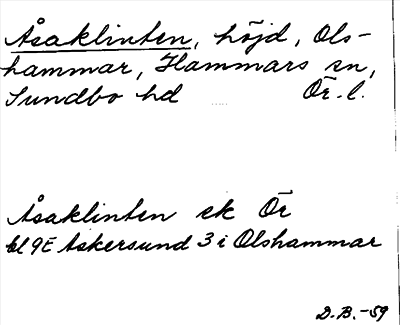 Åsaklinten, höjd, Ols-
hammar, Hammars sn,
Sundbo hd Ör. l.
Åsaklinten ek Ör
bl 9E Askersund 3 i Olshammar
D.B.-59